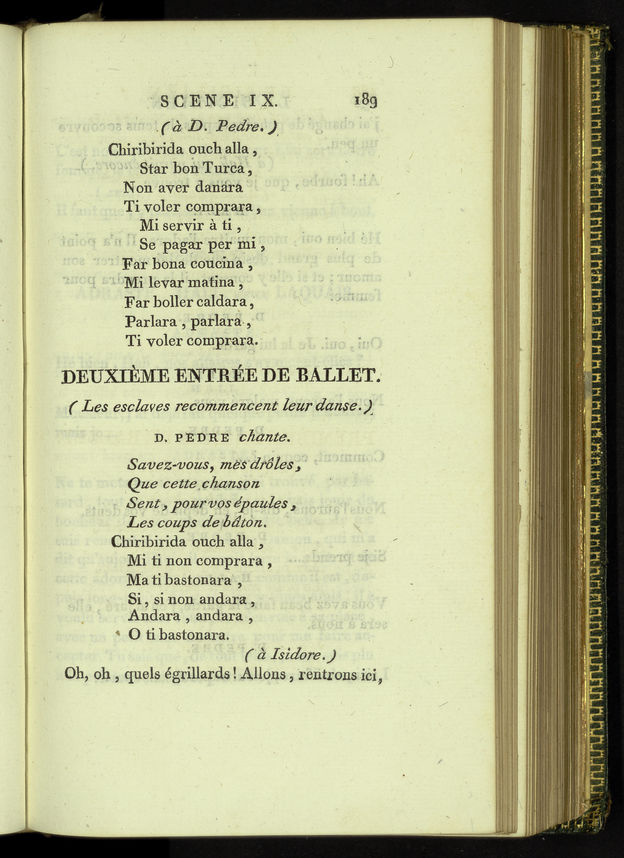 SCENE IX. 189
(à D. Pedre.)
Chiribirida ouch alla,
Star bon Turca,
Non aver danara
Ti voler comprara,
Mi servir à ti,
Se pagar per mi,
Far bona coucina,
Mi levar matina,
Far boller caldara,
Parlara, parlara,
Ti voler comprara.
DEUXIÈME ENTRÉE DE BALLET.
(Les esclaves recommencent leur danse.)
D. PEDRE chante.
Savez-vous, mes drôles,
Que cette chanson
Sent, pour vos épaules,
Les coups de bâton.
Chiribirida ouch alla,
Mi ti non comprara,
Ma ti bastonara,
Si, si non andara,
Andara, andara,
O ti bastonara.
(à Isidore.)
Oh, oh, quels égrillards! Allons, rentrons ici,